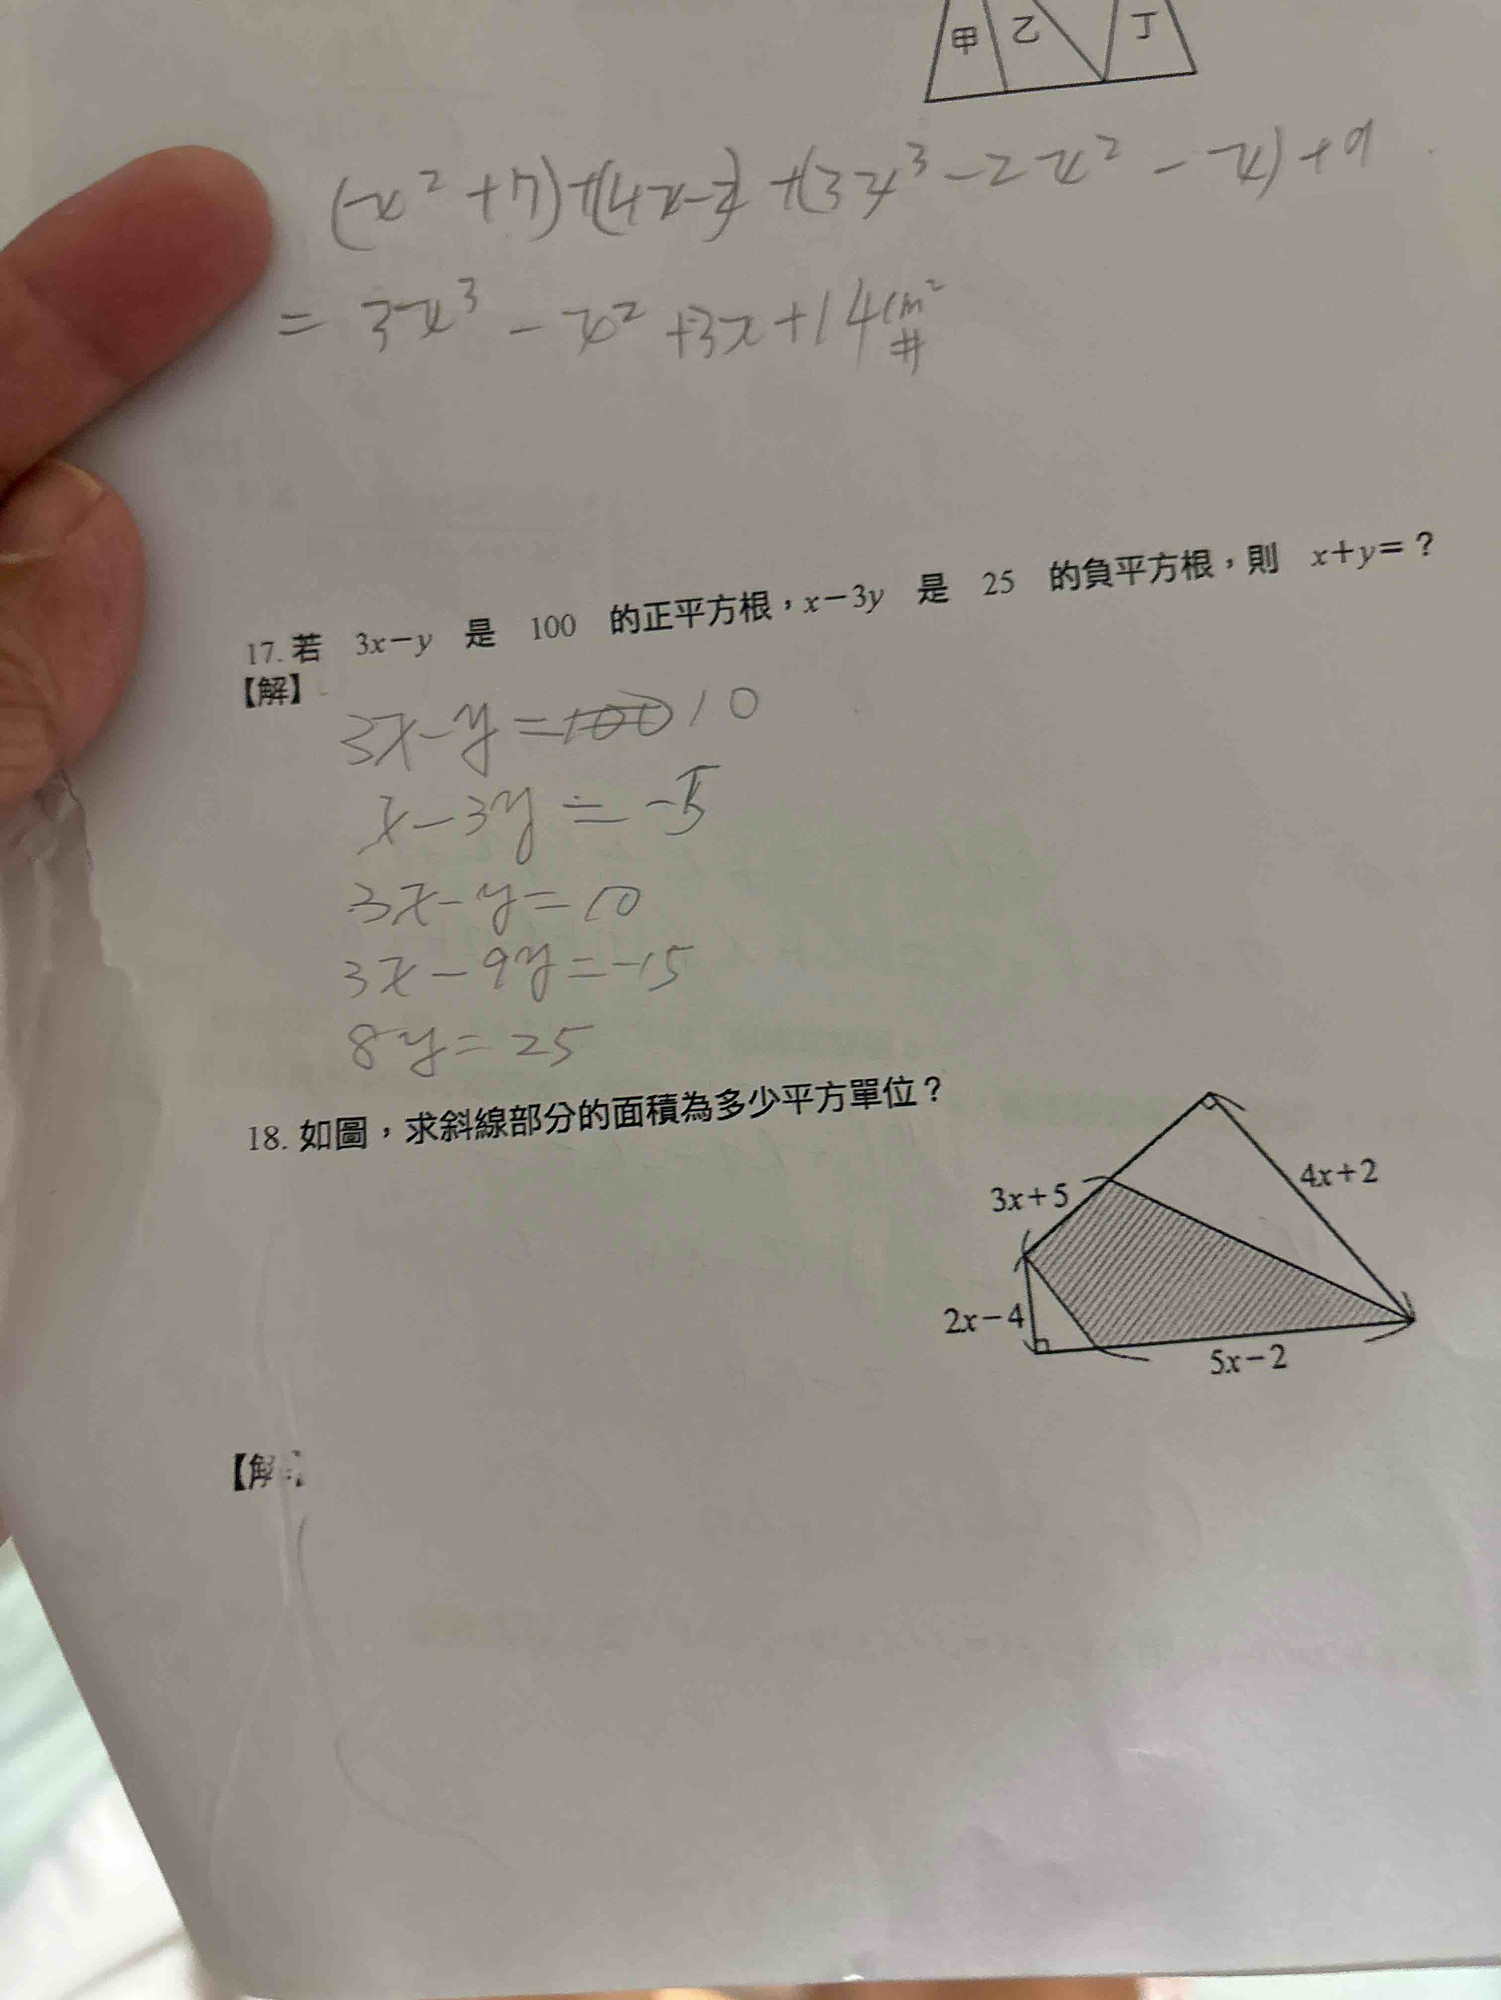 甲 乙 丁
(-x²+7)+(4x-2)+(3x³-2x²-x)+9
=3x³-x²+3x+14cm²
#
17. 若 3x-y 是 100 的正平方根，x-3y 是 25 的負平方根，則 x+y=？
【解】
3x-y=10
x-3y=-5
3x-y=10
3x-9y=-15
8y=25
18. 如圖，求斜線部分的面積為多少平方單位？
3x+5
4x+2
2x-4
5x-2
【解】